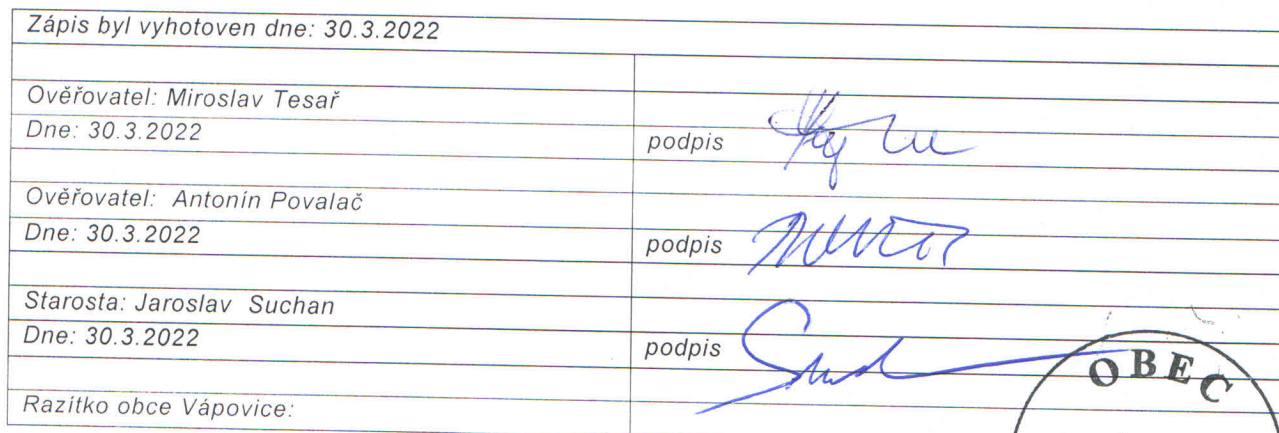 Zápis byl vyhotoven dne: 30.3.2022
Ověřovatel: Miroslav Tesař
Dne: 30.3.2022 podpis
Ověřovatel: Antonín Povalač
Dne: 30.3.2022 podpis
Starosta: Jaroslav Suchan
Dne: 30.3.2022 podpis
OBEC
Razítko obce Vápovice: